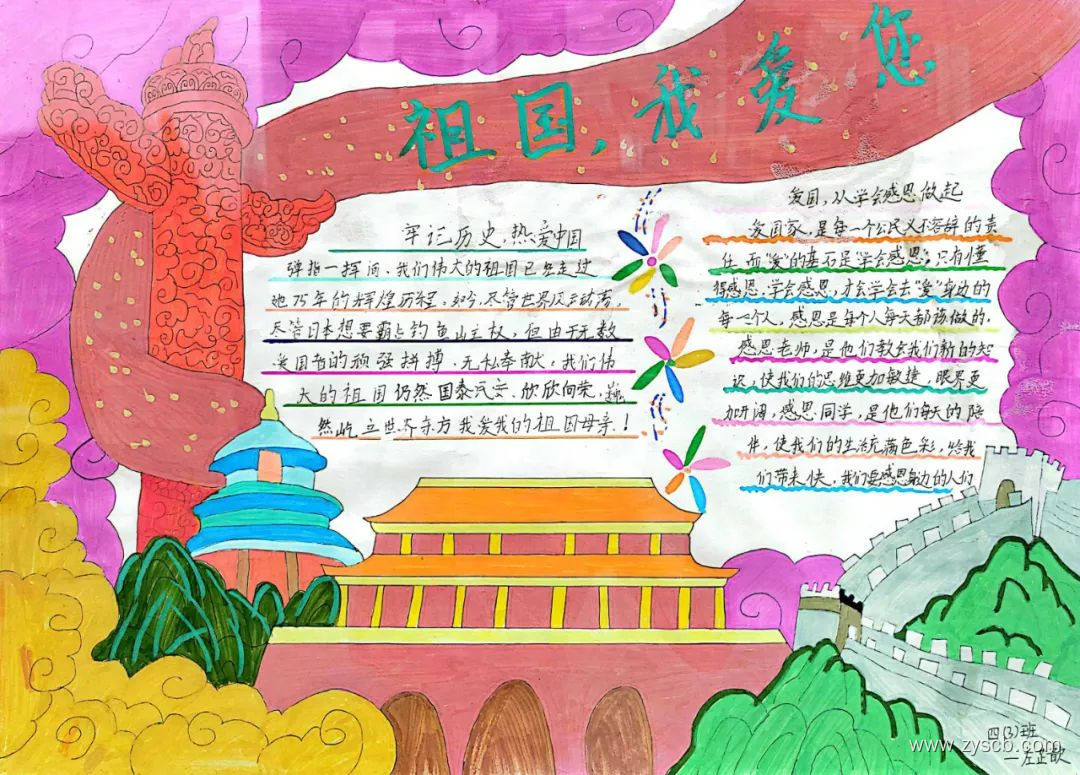 祖国,我爱您
牢记历史,热爱中国
弹指一挥间,我们伟大的祖国已经走过
她75年的辉煌历程,如今,尽管世界风云动荡,
尽管日本想要霸占钓鱼山主权,但由于无数
爱国者的顽强拼搏,无私奉献,我们伟
大的祖国仍然国泰民安、欣欣向荣,巍
然屹立世界东方我爱我的祖国母亲!
爱国,从学会感恩做起
爱国家,是每一个公民义不容辞的责
任,而"爱"的基石是学会感恩;只有懂
得感恩,学会感恩,才会学会去"爱"身边的
每一个人,感恩是每个人每天都该做的.
感恩老师,是他们教给我们新的知
识,使我们的思维更加敏捷,眼界更
加开阔,感恩同学,是他们每天的陪
伴,使我们的生活充满色彩,给我
们带来快,我们要感恩身边的人们
四(3)班
www.zyscb.com